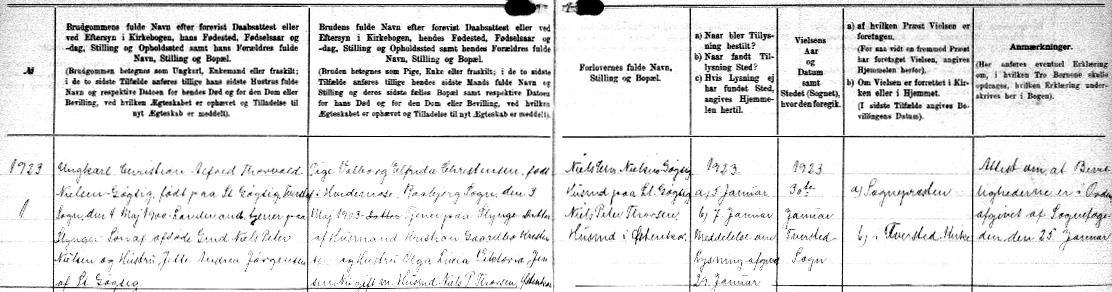 №
Brudgommens fulde Navn efter forevist Daabsattest eller
ved Eftersyn i Kirkebogen, hans Fødested, Fødselsaar og
-dag, Stilling og Opholdssted samt hans Forældres fulde
Navn, Stilling og Bopæl.
(Brudgommen betegnes som Ungkarl, Enkemand eller fraskilt;
i de to sidste Tilfælde anføres tillige hans sidste Hustrus fulde
Navn og respektive Datoen for hendes Død og for den Dom eller
Bevilling, ved hvilken Ægteskabet er ophævet og Tilladelse til
nyt Ægteskab er meddelt).
Brudens fulde Navn efter forevist Daabsattest eller ved
Eftersyn i Kirkebogen, hendes Fødested, Fødselsaar og
-dag, Stilling og Opholdssted samt hendes Forældres fulde
Navn, Stilling og Bopæl.
(Bruden betegnes som Pige, Enke eller fraskilt; i de to sidste
Tilfælde anføres tillige hendes sidste Mands fulde Navn og
Stilling og deres sidste fælles Bopæl samt respektive Datoen
for hans Død og for den Dom eller Bevilling, ved hvilken
Ægteskabet er ophævet og Tilladelse til nyt Ægteskab er
meddelt).
Forlovernes fulde Navn,
Stilling og Bopæl.
a) Naar blev Tillys-
ning bestilt?
b) Naar fandt Til-
lysning Sted?
c) Hvis Lysning ej
har fundet Sted,
angives Hjemme-
len hertil.
Vielsens
Aar
og
Datum
samt
Stedet (Sognet),
hvor den foregik.
a) af hvilken Præst Vielsen er
foretagen.
(For saa vidt en fremmed Præst
har foretaget Vielsen, angives
Hjemmelen herfor).
b) Om Vielsen er forrettet i Kir-
ken eller i Hjemmet.
(I sidste Tilfælde angives Be-
villingens Datum).
Anmærkninger.
(Her anføres eventuel Erklæring
om, i hvilken Tro Børnene skulle
opdrages, hvilken Erklæring under-
skrives her i Bogen).
1923
1
Ungkarl Christian Alfred Thorvald
Nielsen Gøgsig, født paa St. Gøgsig, Tversted
Sogn, den 8 Maj 1900. Landmand, tjener paa
Son af afdøde Gmd Niels Peter
Nielsen og Hustru Jette Andrea Jørgensen
af St. Gøgsig
Pige Valborg Elfrida Christensen, født
i Sogn, den 3
Maj 1903. Tjener paa Datter
af Husmand Kristian
og Hustru Olga Viktoria Jen-
sen Nu gift m. Husmd Niels P. Thorsen,
Niels Nielsen Gøgsig
Husmd paa St. Gøgsig
Niels Peter Thorsen
Husmd i
1923.
a, 5 Januar
b, 7 Januar
Meddelelse om
Lysning afgivet
29 Januar
1923
30te
Januar
Tversted
Sogn
a, Sognepræsten
b, i Tversted Kirke
Attest om at
lighederne er i Orden
afgivet af Sognefoge-
den den 25 Januar